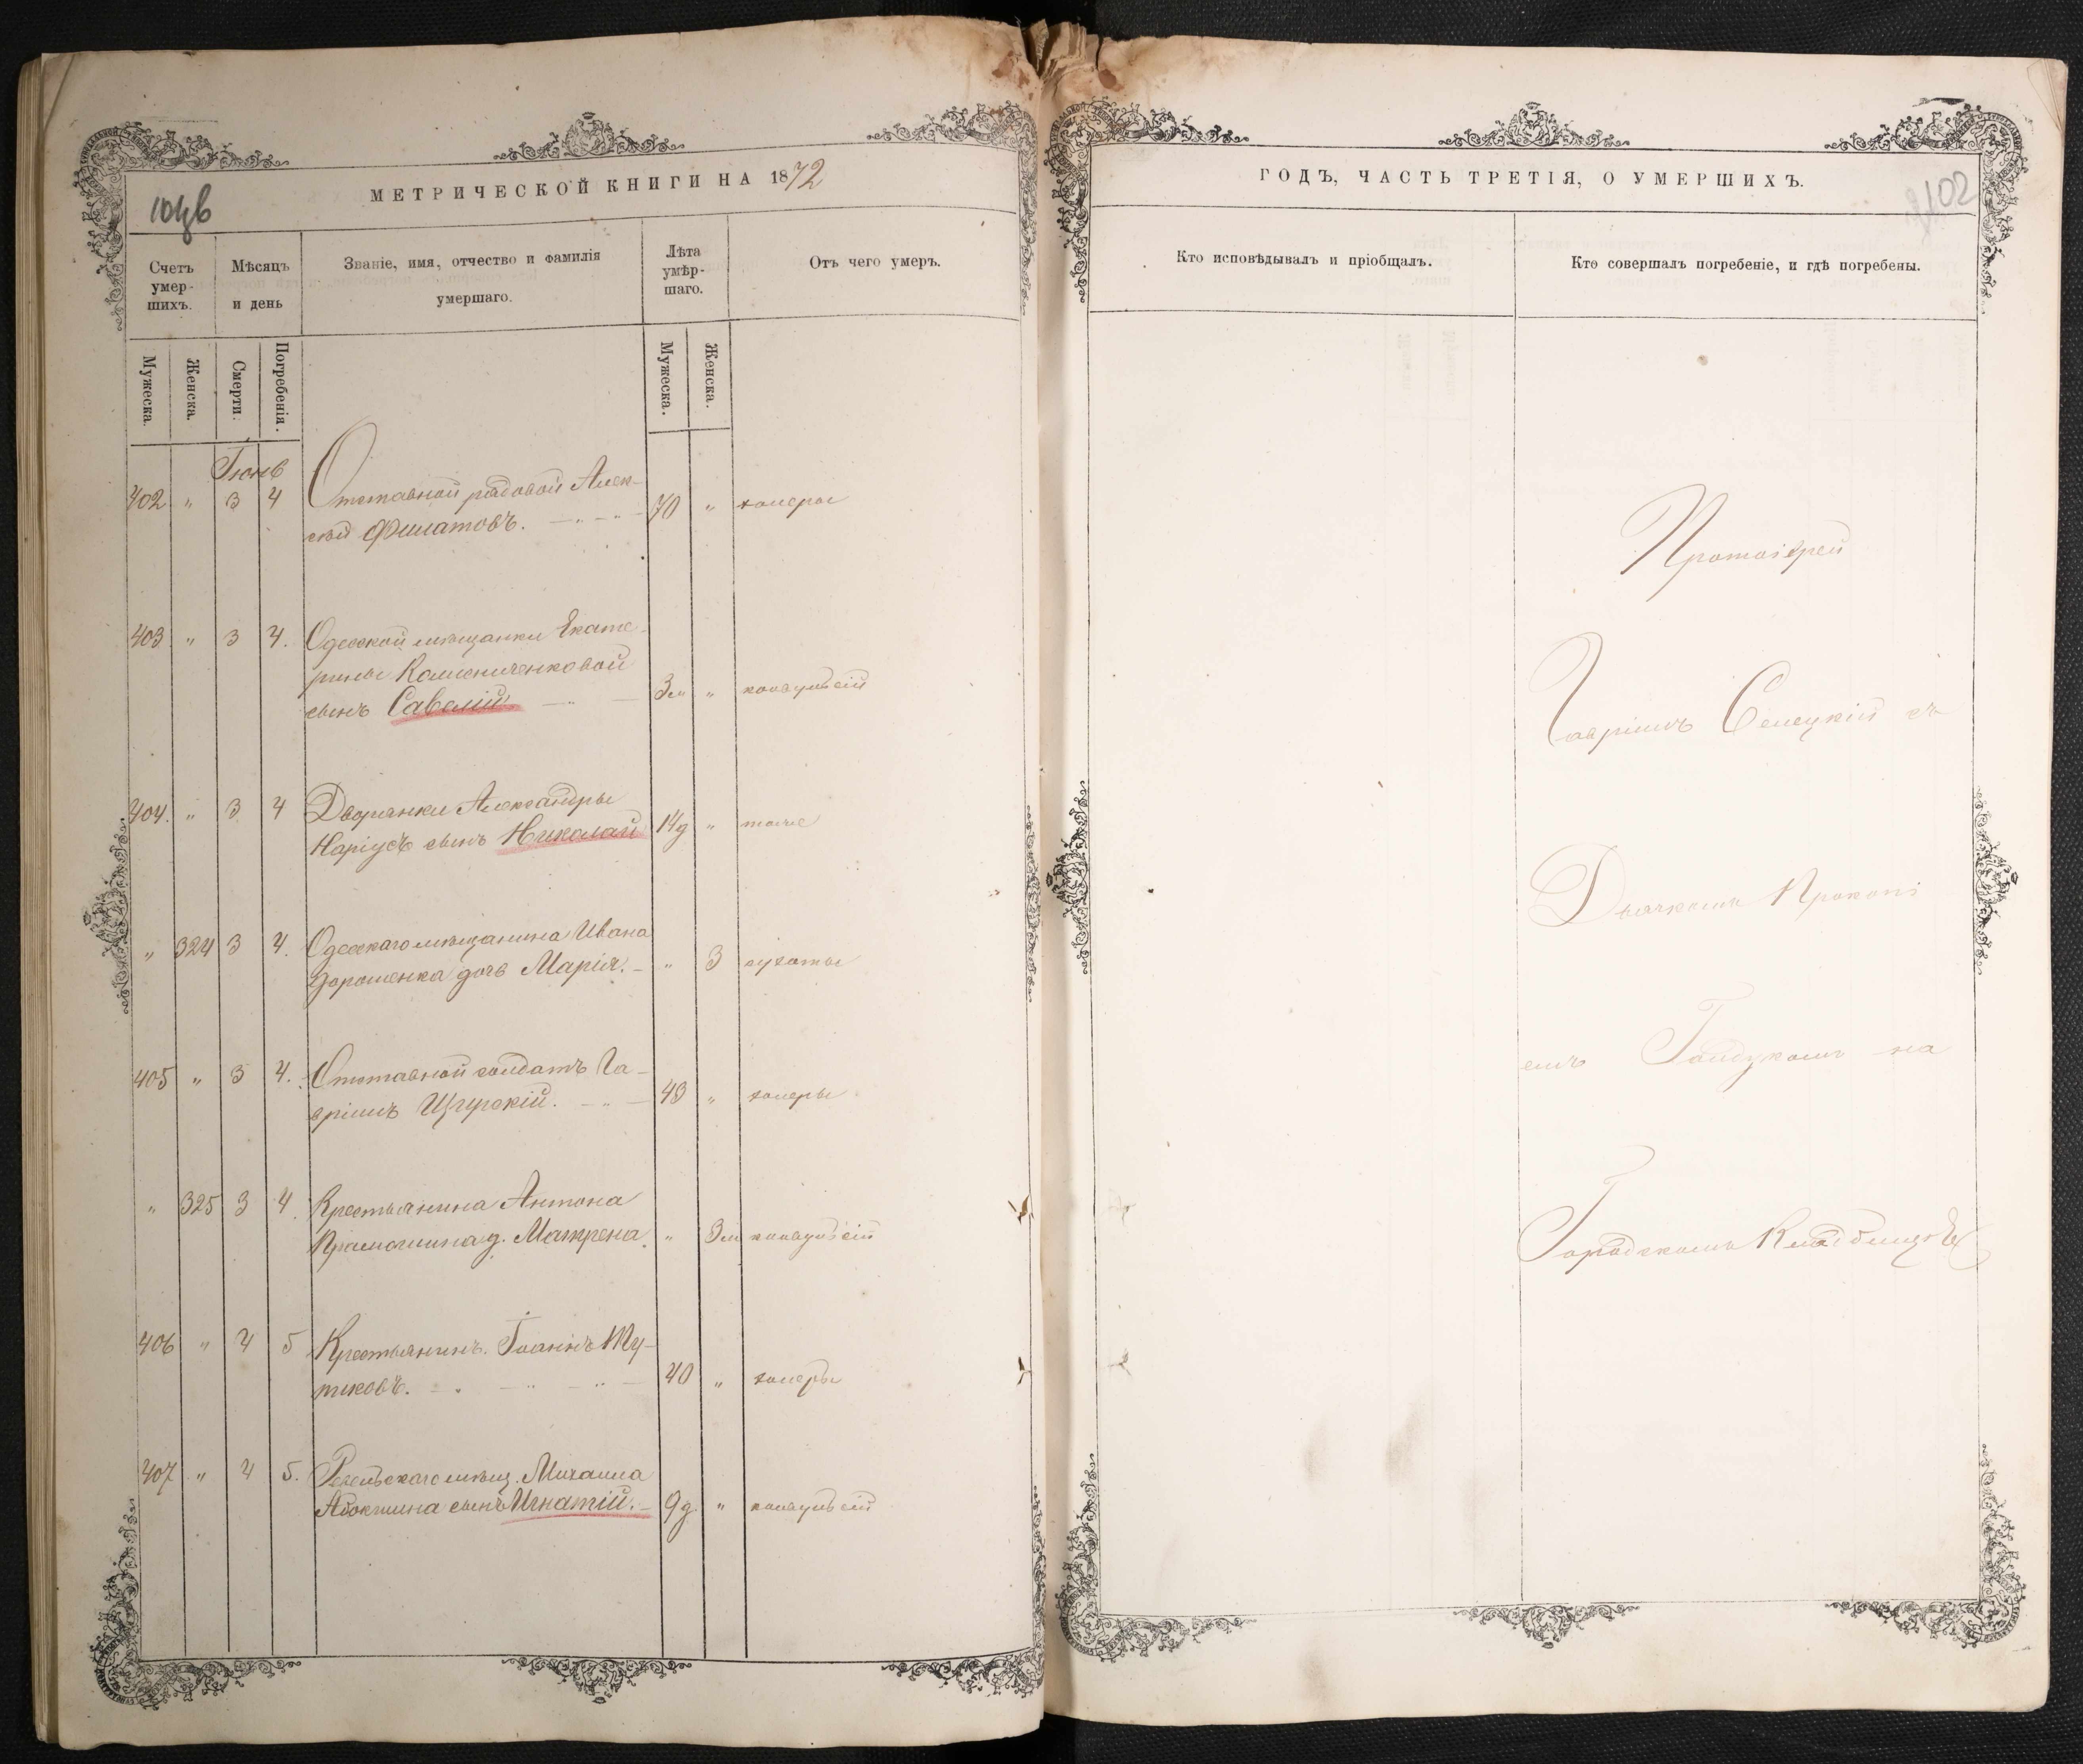 МЕТРИЧЕСКОЙ КНИГИ НА 1872
Счетъ умер-шихъ.
Мѣсяцъ и день
Званіе, имя, отчество и фамилія умершаго.
Лѣта умѣр-шаго.
Отъ чего умеръ.
Мужеска.
Женска.
Смерти.
Погребенія.
Мужеска.
Женска.
Іюнь
402 " 3 4 Отставной рядовой Алек-
сѣй Филатовъ. 70 " холеры
403 " 3 4. Одесской мѣщанки Екате-
рины Калениченковой
сынъ Савелій 3м " конвульсій
404. " 3 4 Дворянки Александры
Наріусъ сынъ Николай 14д " тоже
" 324 3 4. Одесскаго мѣщанина Ивана
Дорошенка дочь Марія. " 3 сухоты
405 " 3 4. Отставной солдатъ Га-
вріилъ Щурскій. 43 " холеры
" 325 3 4. Крестьянина Антона
д. Матрена. " 3м конвульсій
406 " 4 5 Крестьянинъ Іоаннъ Жу-
тиковъ. 40 " холеры
407 " 4 5. мѣщ. Михаила
сынъ Игнатій. 9д " конвульсій
ГОДЪ, ЧАСТЬ ТРЕТІЯ, О УМЕРШИХЪ.
102
Кто исповѣдывалъ и пріобщалъ.
Кто совершалъ погребеніе, и гдѣ погребены.
Протоіерей
Гавріилъ Селецкій съ
Дьячкомъ Прокопі
емъ Гайдукомъ на
Городскомъ Кладбищѣ